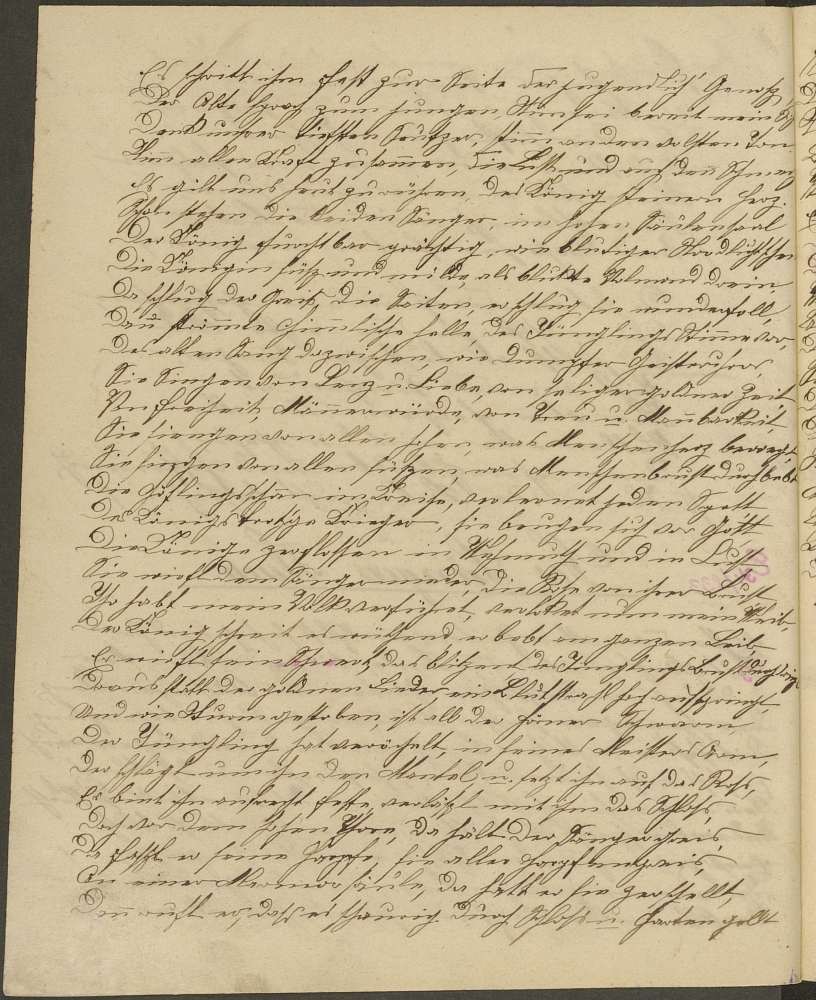 Es schritt ihm fest zur Seite der jugendlich Genoss
Der Alte sprach zum jungen, Nun sei bereit mein S
Denk unsrer tiefsten Seufzer, stim an den volsten Ton
Nim alle Kraft zusammen, die Lust und auch den Schmerz
Es gilt uns heut zu rühren, des König steinern Herz.
Schon stehen die beiden Sänger, im hohen Säulensaal
Der König furchtbar prächtig, wie blutiger Nordlichtschein
Die Königin süß und milde, als blikte Volmond drein
Da schlug der Greis die Seiten, er schlug sie wundervoll,
Dan strömte himmlisch helle, des Jünglings Stimme vor,
Des alten Sang dazwischen, wie dumpfer Geisterchor,
Sie Singen von Lenz u. Liebe, von seliger goldner Zeit
Von Freiheit, Männerwürde, von Treu u. Mannbarkeit,
Sie siengen von allen hohen, was Menschenherz bewegt
Sie singen von allen süßen, was Menschenbrust durchbebt
Die Höflingschar im Kreise, verlernet jeden Spott
Des Königs trotzge Krieger, sie beugen sich vor Gott
Die Könige zerflossen in Wehmuth und in Lust
Sie wirft dem Sänger nieder, die Rose von ihrer Brust
Ihr habt mein Volk verführet, verloket nun mein Weib,
Der König schreit es wüthend er bebt am ganzen Leib
Er wirft sein Schwert, das blitzend des Jünglings Brust durchdringt
Draus statt der goldnen Lieder ein Blutstrahl hoch aufspringt,
Und wie Sturm gestoben, ist all der Hörner Schwarm
Der Jüngling hat veröchelt, in seines Meisters Arm,
Der schlägt um ihn den Mantel u. setzt ihn auf das Ross,
Er bint ihn aufrecht feste, verläßt mit ihm das Schloss,
Doch vor dem hohen Thore, da hält der Sängergreis
Da faßt er seine Harpfe, sie aller Harpfen preis,
An einer Marmorsäule, da hatt er sie zerschellt,
Dan ruft er, dass es schaurig durch Schloss u. Garten gellt